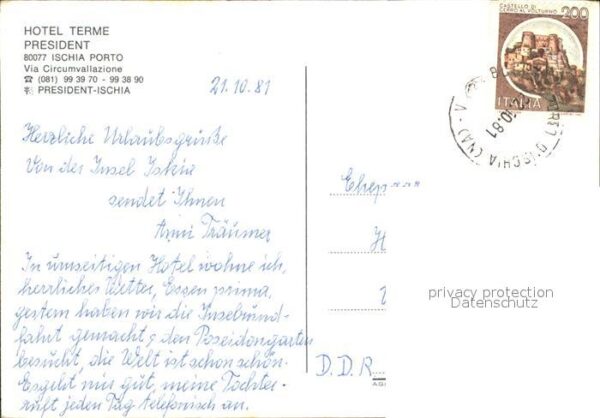 HOTEL TERME
PRESIDENT
80077 ISCHIA PORTO
Via Circumvallazione
☎ (081) 99 39 70 - 99 38 90
PRESIDENT-ISCHIA
21.10.81
Herzliche Urlaubsgrüße
Von der Insel Iskia
sendet Ihnen
Anni Träumer
In umseitigen Hotel wohne ich,
herrliches Wetter, Essen prima,
gestern haben wir die Inselrund-
fahrt gemacht & den Poseidongarten
besucht, die Welt ist schon schön.
Es geht mir gut, meine Tochter
ruft jeden Tag telefonisch an.
CASTELLO DI
CERRO AL VOLTURNO
200
ITALIA
D'ISCHIA (NA) - V
10.81
Ehep
H
privacy protection
Datenschutz
D.D.R.
AG